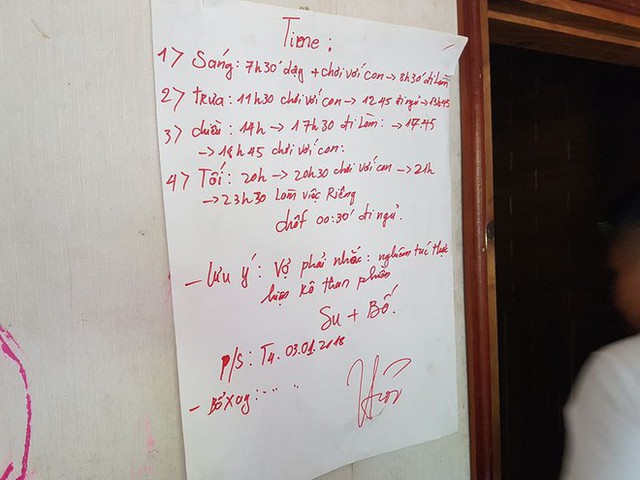 Time:
1> Sáng: 7h30 dậy + chơi với con → 8h30 đi làm
2> Trưa: 11h30 chơi với con → 12 45 đi ngủ → 13h45
3> chiều: 14h → 17h30 đi làm: → 17:45
→ 18h45 chơi với con:
4> Tối: 20h → 20h30 chơi với con → 21h
→ 23h30 Làm việc Riêng
chốt 00:30' đi ngủ.
- Lưu ý: Vợ phải nhắc: nghiêm túc thực
hiện kô than phiền
Su + Bố.
P/S: T4. 03.01.2018
- Bổ xung: